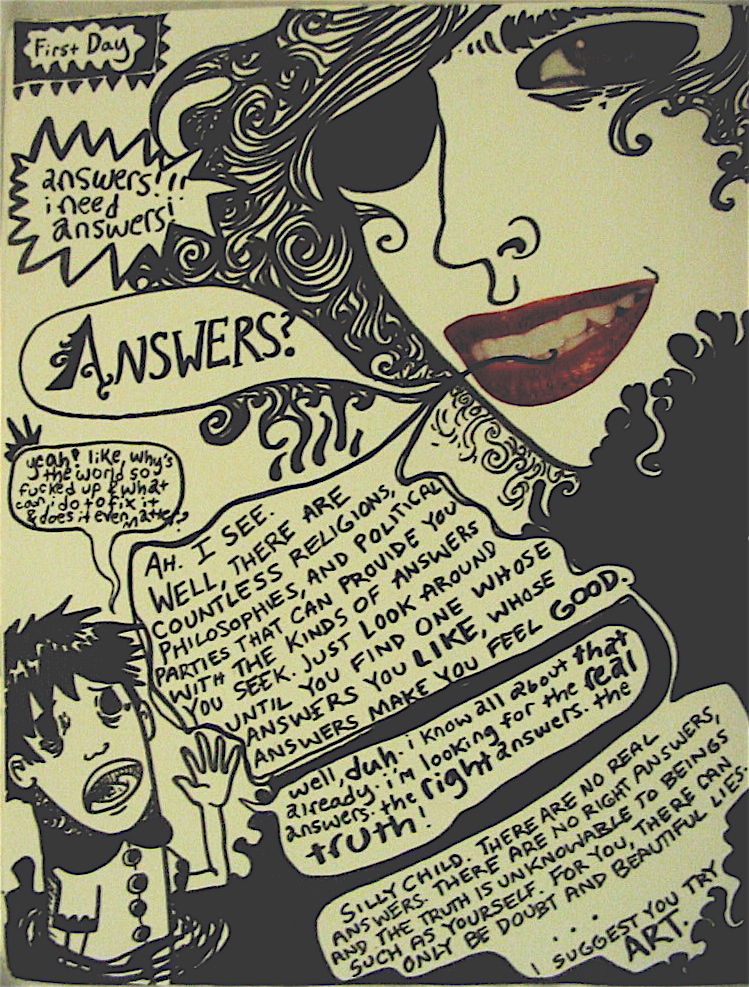 First Day
answers!!!
i need
answers!
ANSWERS?
yeah! like, why's
the world so
fucked up & what
can i do to fix it
& does it even matter?
AH. I SEE.
WELL, THERE ARE
COUNTLESS RELIGIONS,
PHILOSOPHIES, AND POLITICAL
PARTIES THAT CAN PROVIDE YOU
WITH THE KINDS OF ANSWERS
YOU SEEK. JUST LOOK AROUND
UNTIL YOU FIND ONE WHOSE
ANSWERS YOU LIKE, WHOSE
ANSWERS MAKE YOU FEEL GOOD.
well, duh. i know all about that
already. i'm looking for the real
answers. the right answers. the
truth!
SILLY CHILD. THERE ARE NO REAL
ANSWERS. THERE ARE NO RIGHT ANSWERS,
AND THE TRUTH IS UNKNOWABLE TO BEINGS
SUCH AS YOURSELF. FOR YOU, THERE CAN
ONLY BE DOUBT AND BEAUTIFUL LIES.
. . .
I SUGGEST YOU TRY
ART.